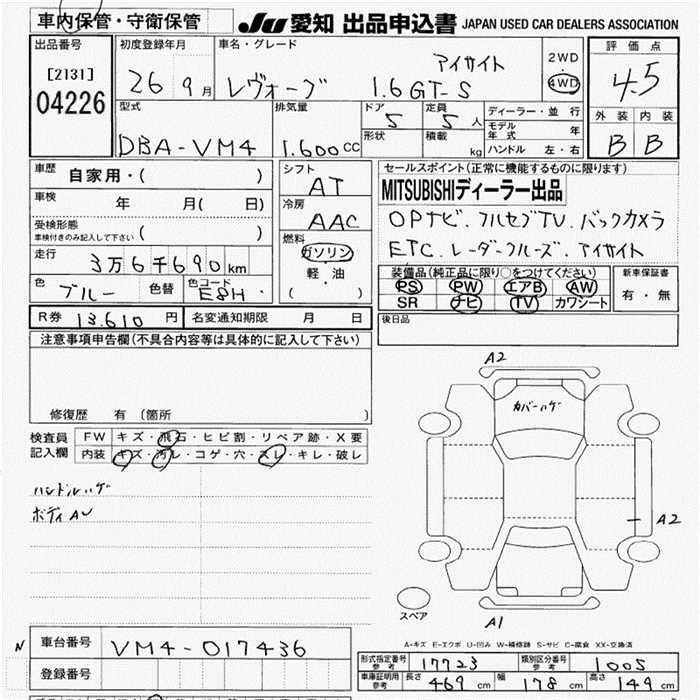 車内保管・守衛保管 JU 愛知 出品申込書 JAPAN USED CAR DEALERS ASSOCIATION
出品番号 初度登録年月 車名・グレード 評価点
[2131] 04226 26 9月 レヴォーグ 1.6 GT-S アイサイト 2WD 4WD 4.5
型式 排気量 ドア 定員 ディーラー・並行 外装 内装
DBA-VM4 1.600cc 5 5人 モデル年式 年 B B
形状 積載 kg ハンドル 左・右
車歴 自家用・( ) シフト AT セールスポイント(正常に機能するものに限ります)
車検 年 月( 日) 冷房 AAC MITSUBISHIディーラー出品
受検形態 車検付きのみ記入して下さい ( ) OPナビ.フルセグTV.バックカメラ
燃料 ガソリン ETC.レーダークルーズ.アイサイト
走行 3万6千690km 軽・油 ( )
装備品(純正品に限り○をつけてください) 新車保証書
色 ブルー 色替 色コード E8H PS PW エアB AW 有・無
SR ナビ TV カワシート
R券 13.610円 名変通知期限 月 日 後日品
注意事項申告欄(不具合内容等は具体的に記入して下さい)
修復歴 有 (箇所 )
検査員記入欄 FW キズ・飛石・ヒビ割・リペア跡・X要
内装 キズ・汚レ・コゲ・穴・スレ・キレ・破レ
ハンドルハゲ
ボディAU
A2
カバーハゲ
A2
スペア
A1
A-キズ E-エクボ U-凹み W-補修跡 S-サビ C-腐食 XX-交換済
N 車台番号 VM4-017436
登録番号
形式指定番号 参考 17723 類別区分番号 参考 1005
車庫証明用 参考 長さ 469cm 幅 178cm 高さ 149cm